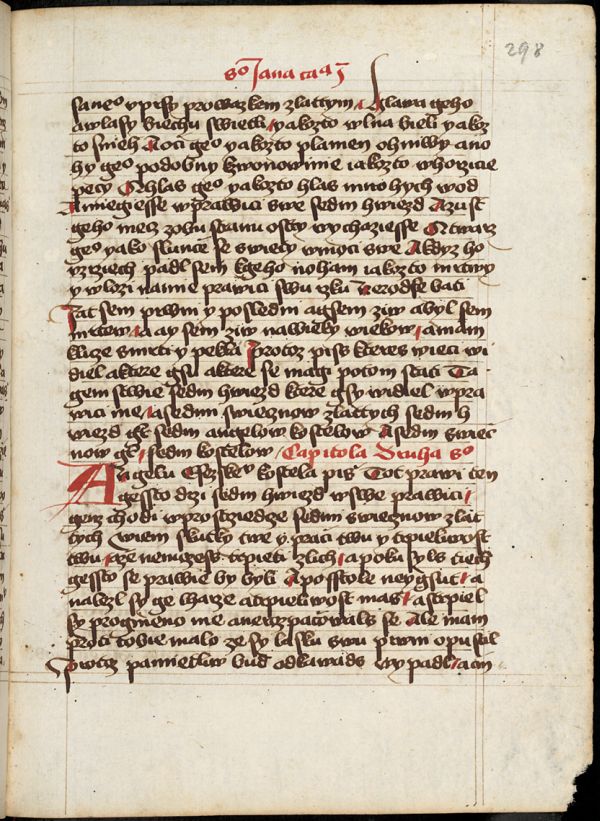 298
sº Jana ca
saneº y prsy prowazkem zlattym / Hlawa geho
a wlasy biechu swietli / yakozto wlna bieli yakoz
to snieh A oci geº yakozto plamen ohniwy a no
hy geº podobny kzwonowi me iakozto w horzicie
pecy A hlas geº yakozto hlas mnohych wod
A miegiesse w prawici swe sedm hwiezd A z ust
geho mecz z obu stranu ostry wychaziesse A twarz
geº yako slunce se swiecy w moci swe A kdyz ho
vzrziech padl sem k geho noham iakozto mrtwy
y wlozi na mie prawici swu rzka Nerod se bati
Jat sem prwni y posledni at sem ziw a byl sem
mrtew / a ay sem ziw na wieky wiekow / a mam
klicze smrti y pekla Protoz piss kteres wieci wi
diel a ktere gsu a ktere se magi potom stati Ta
gemstwie sedm hwiezd ktere gsy widiel w pra
wici me / a sedm swiecznow zlattych sedm h
wiezd gt sedm angelow kostelow A sedm swiec
now gt / sedm kostelow / Capitola Druha sº
Angelu Efezkeº kostela pis Tot prawi ten
gessto drzi sedm hwiezd w swe prawici /
genz chodi w prostrziedze sedm swiecznow zlat
tych Wiem skutky twe y praci twu y trpeliwost
twu / a ze nemuzess trpieti zlich / a pokusyls tiech
gessto se prawie by byli Aposstole neygsut / a
nalezl sy ge lharze a trpeliwost mas / a strpiel
sy pro gmeno me a nerozpacowals se Ale mam
proti tobie malo ze sy lasku swu prwni opustil
Protoz pamietliw bud odkawads wypadl / a cin